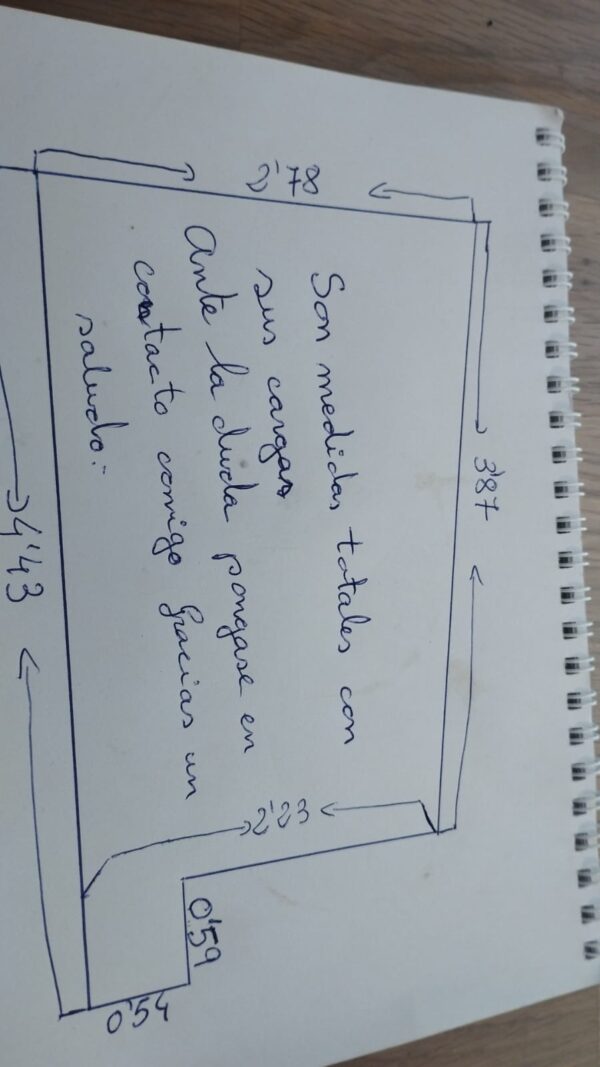 3'87
2'78
Son medidas totales con
sus cargas
Ante la duda pongase en
contacto comigo Gracias un
saludo.-
2'23
0'59
0'54
4'43